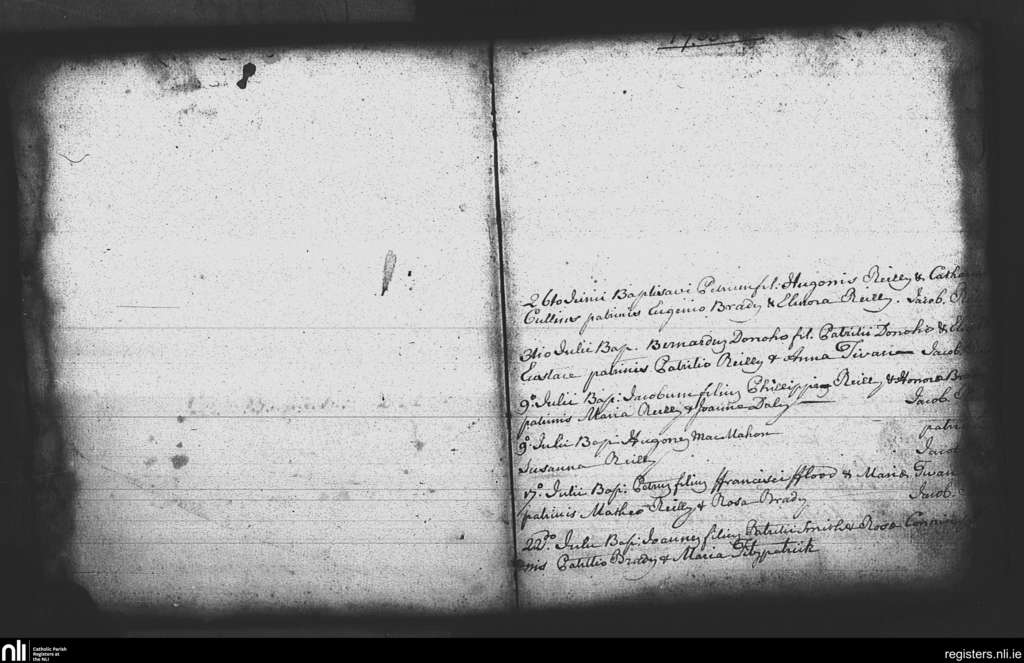 26to Junii Baptisavi Petrum fil: Hugonis Reilly &
Cullins patrinis Eugenio Brady & Elinora Reilly. Jacob.
3tio Julii Bap. Bernardum Donoho fil. Patritii Donoho &
Eastace patrinis Patritio Reilly & Anna Jacob.
9o. Julii Bap: Jacobum filium Phillippi Reilly & Honora
patrinis Maria Reilly & Joanne Daly Jacob.
9o. Julii Bap: Hugonem MacMahon
Susanna Reilly Jacob
17o. Julii Bap: Petrum filium ffrancisci fflood & Maria
patrinis Matheo Reilly & Rosa Brady Jacob.
22do. Julii Bap: Joannem filium Patritii Smith & Rosa
Patritio Brady & Maria Fitzpatrick
nli
Catholic Parish
Registers at
the NLI
registers.nli.ie